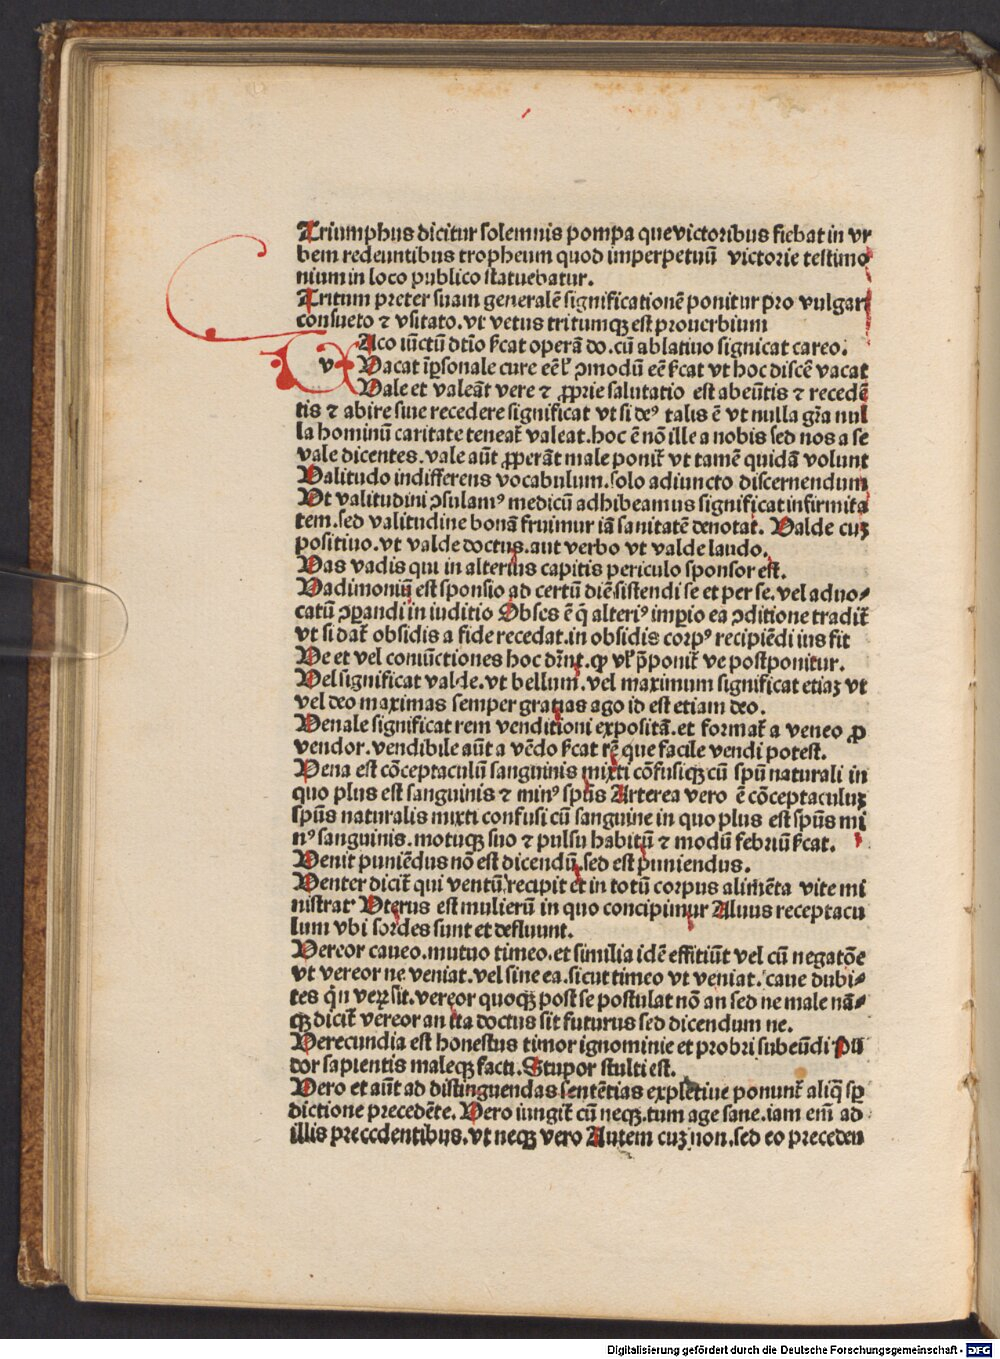 Triumphus dicitur solemnis pompa que victoribus fiebat in vr
bem redeuntibus tropheum quod imperpetuū victorie testimo
nium in loco publico statuebatur.
Tritum preter suam generalē significationē ponitur pro vulgari
consueto ⁊ vsitato. vt vetus tritumqꝫ est prouerbium
v Aco iūctū dtīo ſcat operā do. cū ablatiuo signicat careo.
Vacat īpsonale cure eē lꝰ ꝯmodū eē ſcat vt hoc discē vacat
Vale et valeāt vere ⁊ ꝓprie salutatio est abeūtis ⁊ recedē
tis ⁊ abire siue recedere significat vt si deꝰ talis ē vt nulla gr̄a nul
la hominū caritate teneat̄ valeat. hoc ē nō ille a nobis sed nos a se
vale dicentes. vale aūt ꝓperāt male ponit̄ vt tamē quidā volunt
Valitudo indifferens vocabulum. solo adiuncto discernendum
Vt valitudini ꝯsulamꝰ medicū adhibeamus significat infirmita
tem. sed valitudine bonā fruimur iā sanitatē denotat. Valde cuꝫ
positiuo. vt valde doctus. aut verbo vt valde laudo.
Vas vadis qui in alterius capitis periculo sponsor est.
Vadimoniū est sponsio ad certū diē sistendi se et per se. vel aduo⸗
catū ꝯꝑandi in iuditio Obses ē q̄ alteriꝰ imꝑio ea ꝯditione tradit̄
vt si dat̄ obsidis a fide recedat. in obsidis corpꝰ recipiēdi ius fit
Ve et vel coniūctiones hoc dr̄nt. ꝙ vlꝰ p̄ponit̄ ve postponitur.
Vel significat valde. vt bellum. vel maximum significat etiaꝫ vt
vel deo maximas semper gratias ago id est etiam deo.
Venale significat rem venditioni expositā. et format̄ a veneo ꝓ
vendor. vendibile aūt a vēdo ſcat rē que facile vendi potest.
Vena est cōceptaculū sanguinis mixti cōfusiqꝫ cū spū naturali in
quo plus est sanguinis ⁊ minꝰ spūs Arterea vero ē cōceptaculuꝫ
spūs naturalis mixti confusi cū sanguine in quo plus est spūs mi
nꝰ sanguinis. motuqꝫ suo ⁊ pulsu habitū ⁊ modū febriū ſcat.
Venit puniēdus nō est dicendū. sed est puniendus.
Venter dicit̄ qui ventū recipit et in totū corpus alimēta vite mi
nistrat Vterus est mulierū in quo concipimur Aluus receptacu
lum vbi sordes sunt et defluunt.
Vereor caueo. mutuo timeo. et similia idē effitiūt vel cū negatōe
vt vereor ne veniat. vel sine ea. sicut timeo vt veniat. caue dubi⸗
tes q̄n veꝝ sit. vereor quoqꝫ post se postulat nō an sed ne male nā⸗
qꝫ dicit̄ vereor an ita doctus sit futurus sed dicendum ne.
Verecundia est honestus timor ignominie et probri subeūdi Pu
dor sapientis maleqꝫ facti. Stupor stulti est.
Vero et aūt ad distinguendas sentētias expletiue ponunt̄ aliq̄ sꝑ
dictione precedēte. Vero iungit̄ cū neqꝫ. tum age sane. iam eni̅ ad
illis precedentibus. vt neqꝫ vero Autem cuꝫ non. sed eo preceden
Digitalisierung gefördert durch die Deutsche Forschungsgemeinschaft - DFG